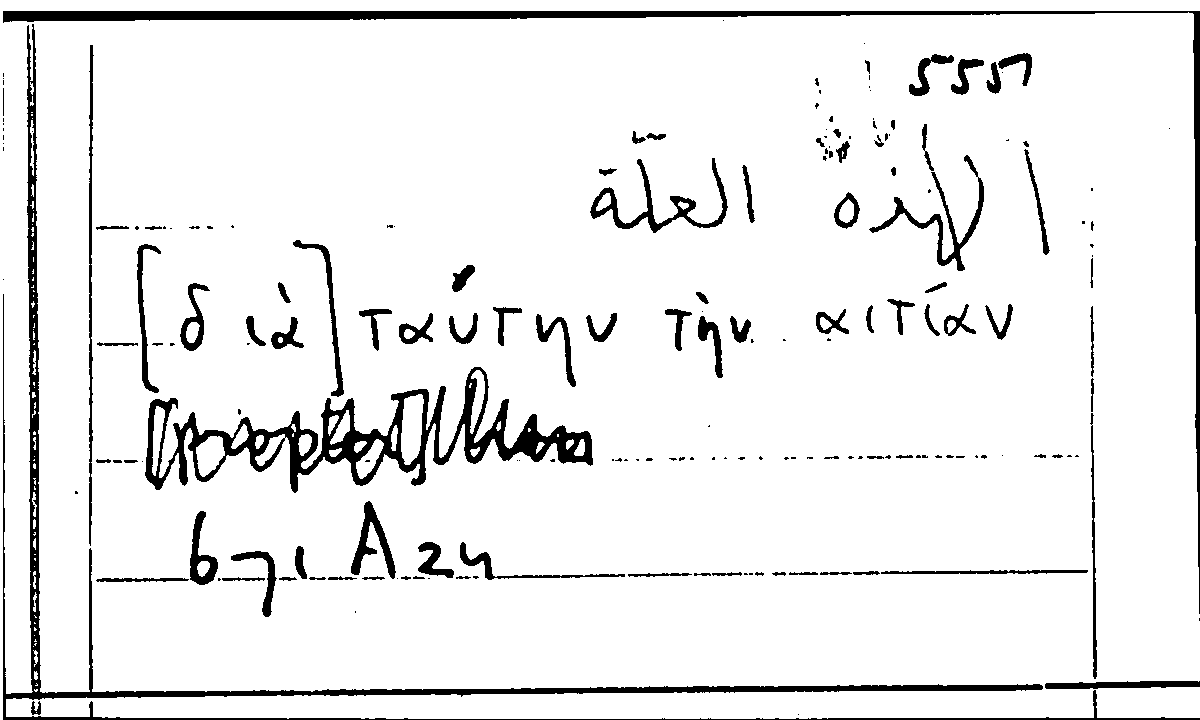 5557
لهذه العلّة
[διὰ] ταύτην τὴν αιτίαν
671 A 24